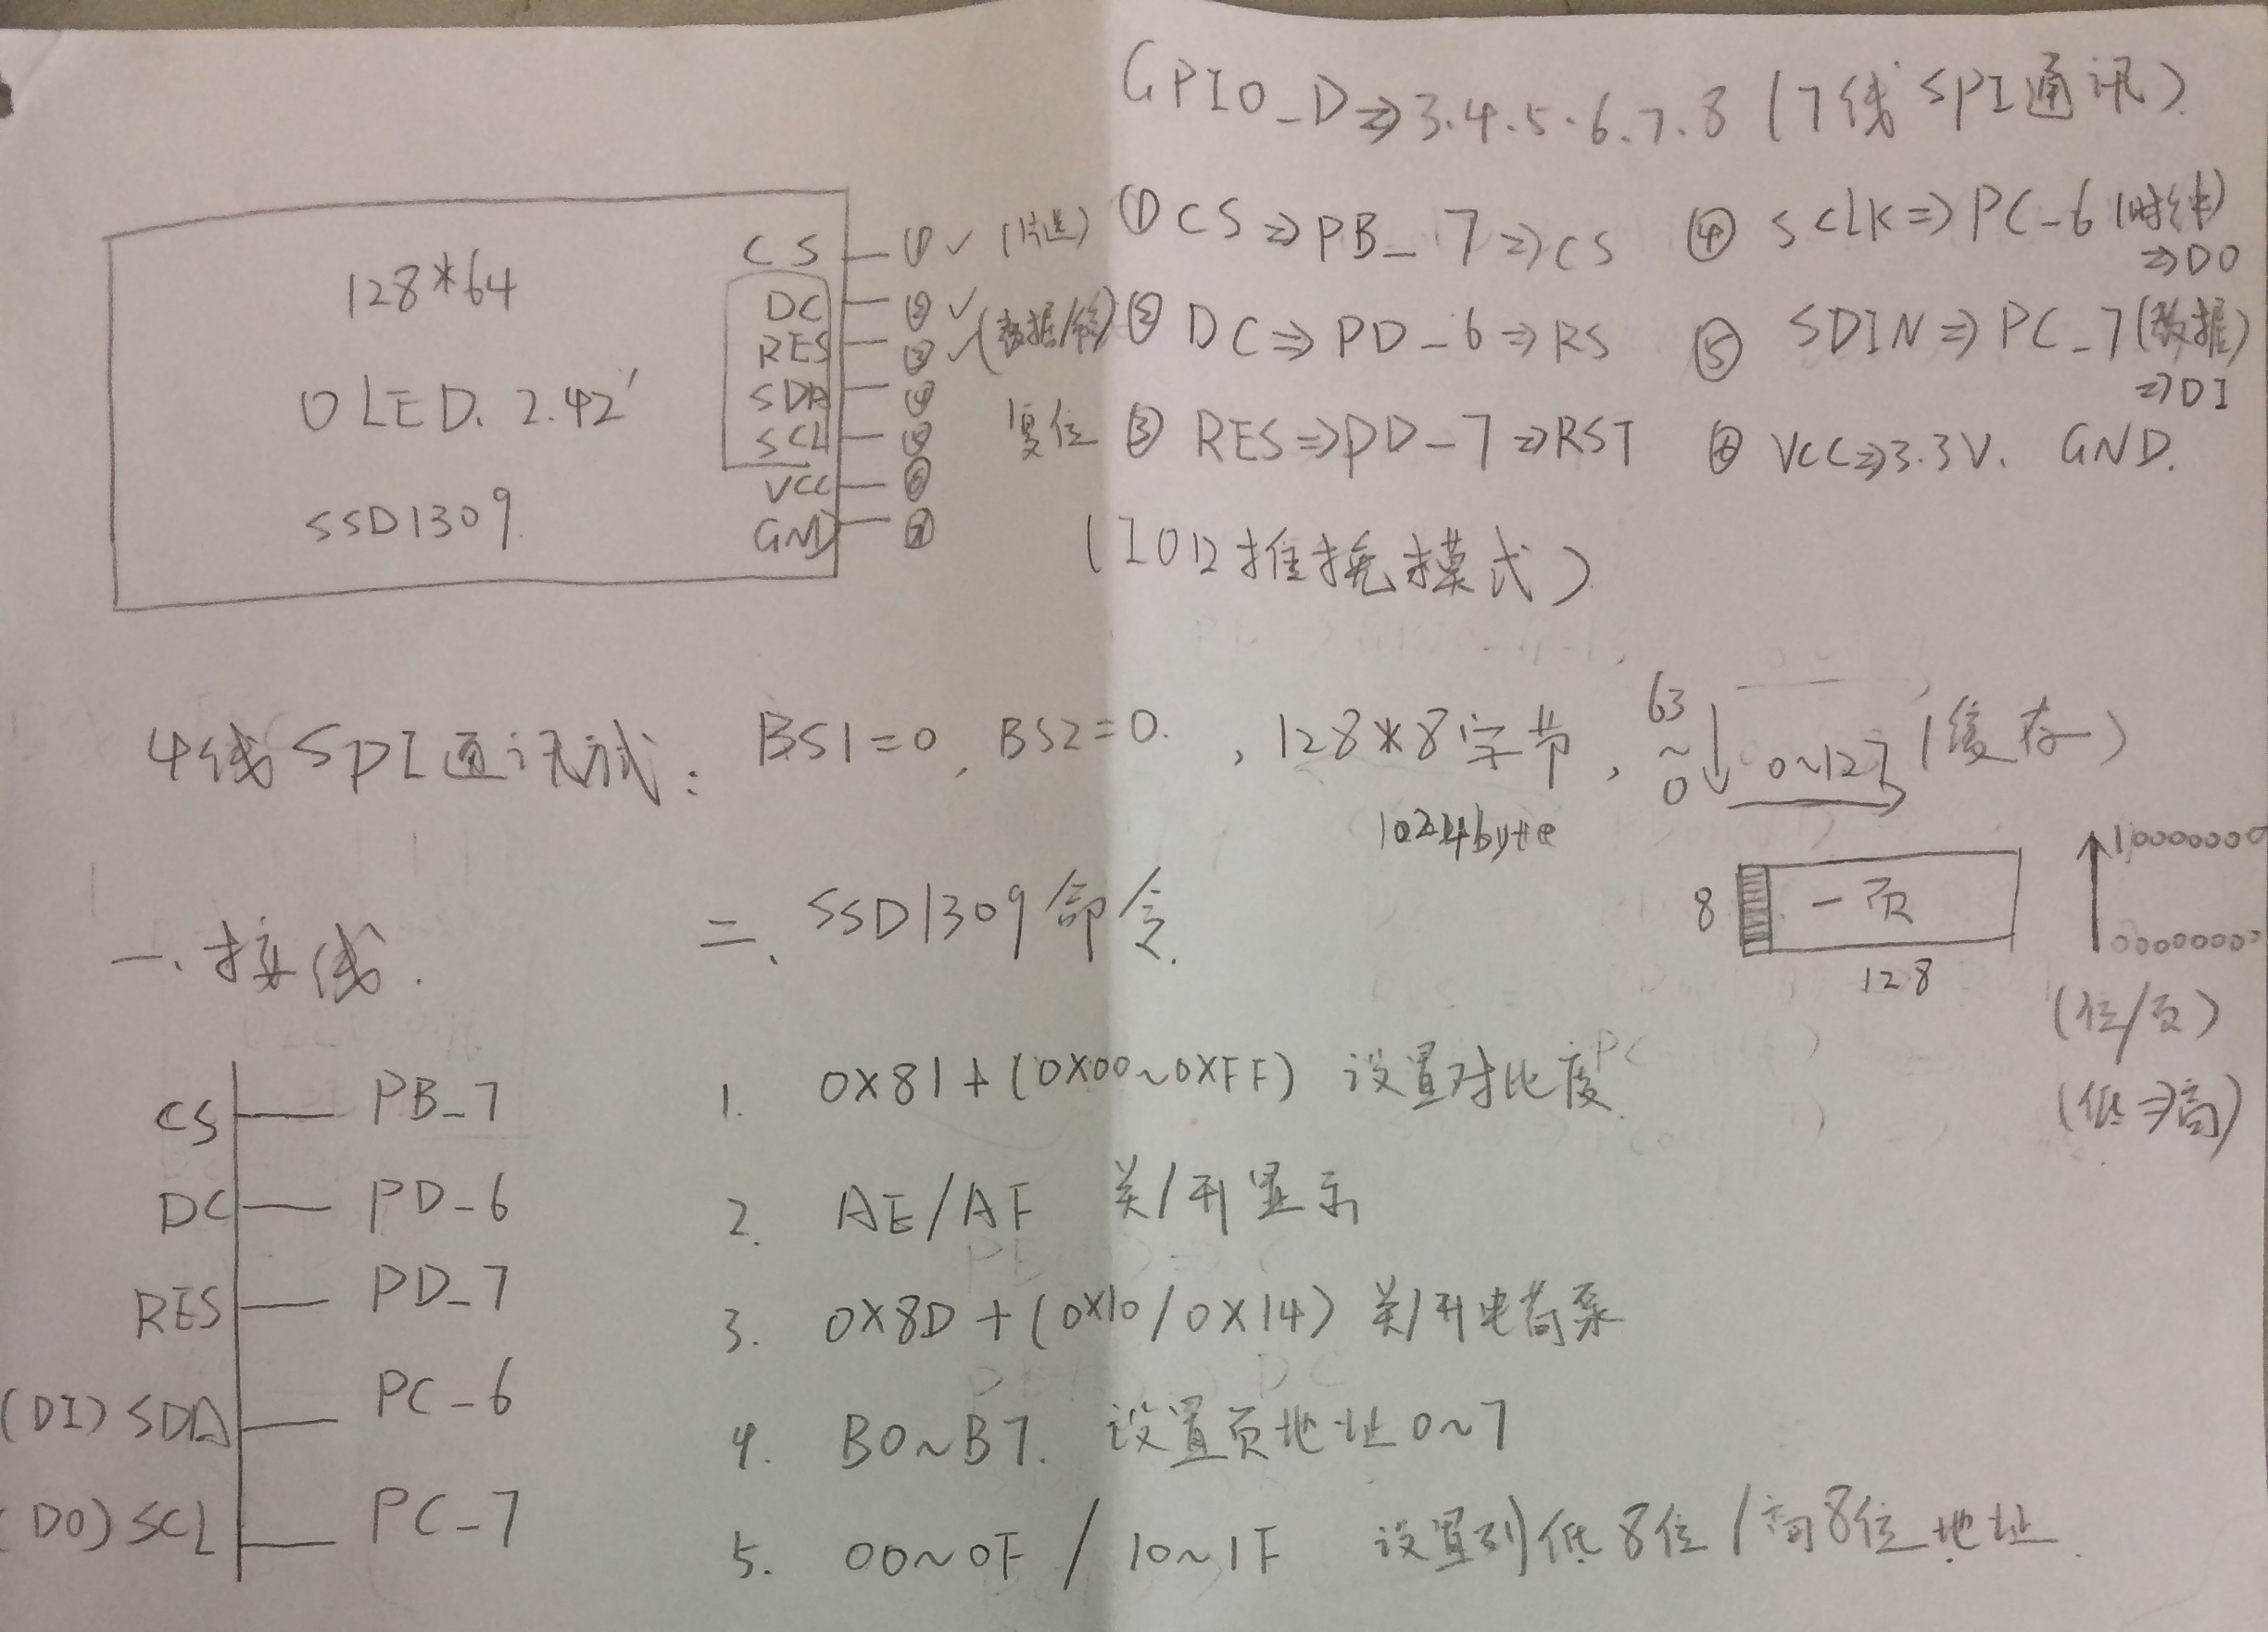 GPIO_D⇒3.4.5.6.7.8 (7线SPI通讯)
128*64
OLED. 2.42'
SSD1309.
CS — ① ✓ (片选)
DC — ② ✓ (数据/命令)
RES — ③ ✓ 复位
SDA — ④
SCL — ⑤
VCC — ⑥
GND — ⑦
① CS⇒PB_7⇒CS
② DC⇒PD_6⇒RS
③ RES⇒PD_7⇒RST
④ SCLK⇒PC_6 (时钟)
⇒D0
⑤ SDIN⇒PC_7 (数据)
⇒DI
⑥ VCC⇒3.3V. GND.
(IO口推挽模式)
4线SPI通讯试: BS1=0, BS2=0. , 128*8字节,
1024byte
63
~
0
0~127 (缓存)
8 一页
128
10000000
00000000
(位/页)
(低⇒高)
一、接线.
CS — PB_7
DC — PD_6
RES — PD_7
(DI) SDA — PC_6
(D0) SCL — PC_7
二、SSD1309命令.
1. 0X81+(0X00~0XFF) 设置对比度.
2. AE/AF 关/开显示
3. 0X8D+(0X10/0X14) 关/开电荷泵
4. B0~B7. 设置页地址0~7
5. 00~0F / 10~1F 设置列低8位/高8位地址.